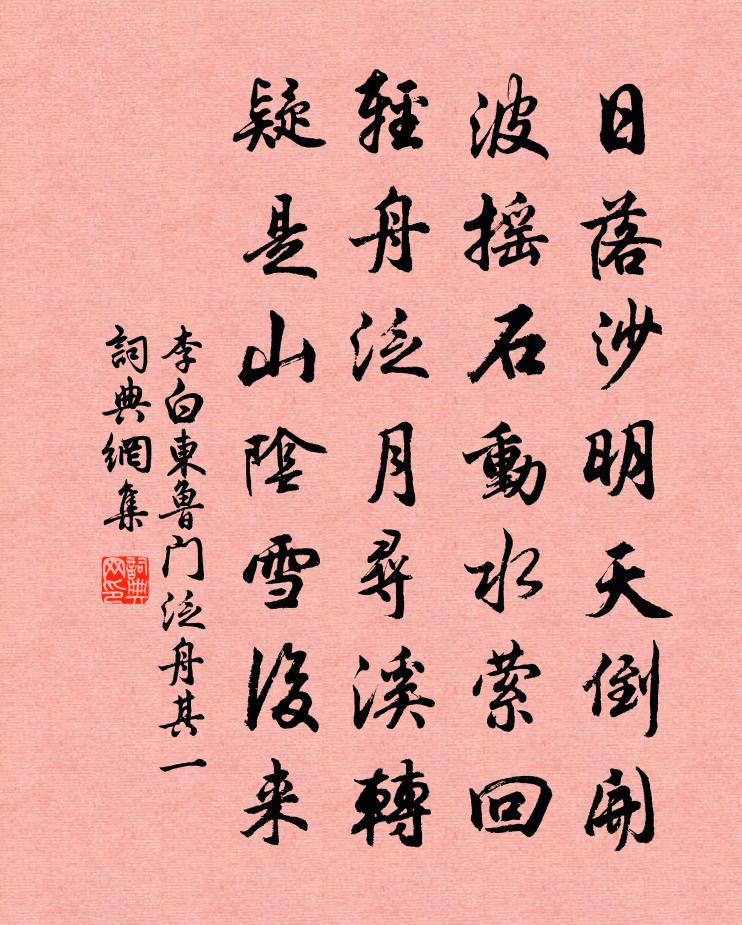 日落沙明天倒開
波摇石動水萦回
輕舟泛月尋溪轉
疑是山陰雪後来
李白東魯门泛舟其一
詞典網集
詞典网印